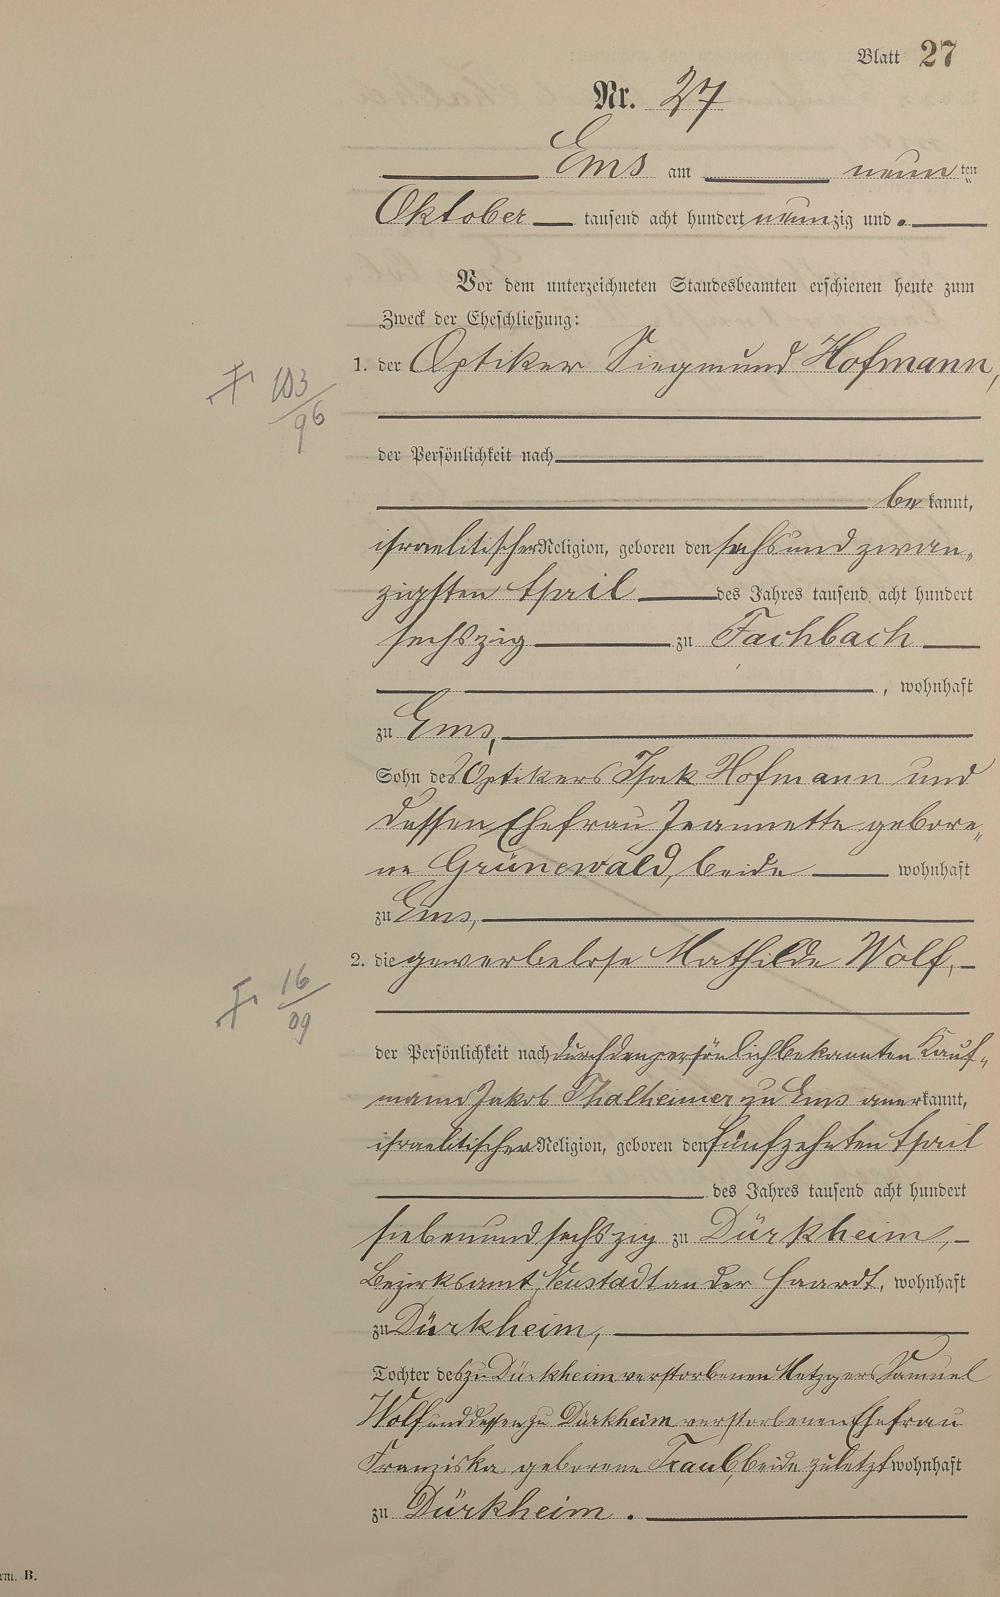 Blatt 27
Nr. 27
Ems am neunten
Oktober tausend acht hundert neunzig und
Vor dem unterzeichneten Standesbeamten erschienen heute zum
Zweck der Eheschließung:
1. der Optiker Siegmund Hofmann,
der Persönlichkeit nach
bekannt,
israelitischer Religion, geboren den sechsund zwan-
zigsten April des Jahres tausend acht hundert
sechszig zu Fachbach
, wohnhaft
zu Ems,
Sohn des Optikers Isak Hofmann und
dessen Ehefrau Jeannette gebore-
ne Grünewald, beide wohnhaft
zu Ems,
2. die gewerbelose Mathilde Wolf,
der Persönlichkeit nach durch den persönlich bekannten Kauf-
mann Jakob Thalheimer zu Ems anerkannt,
israelitischer Religion, geboren den fünfzehnten April
des Jahres tausend acht hundert
siebenundsechszig zu Dürkheim,
Bezirksamt Neustadt an der Haardt, wohnhaft
zu Dürkheim,
Tochter des zu Dürkheim verstorbenen Metzgers Samuel
Wolf und dessen zu Dürkheim verstorbenen Ehefrau
Franziska geborene Traub, beide zuletzt wohnhaft
zu Dürkheim.
103/96
16/09
rm. B.